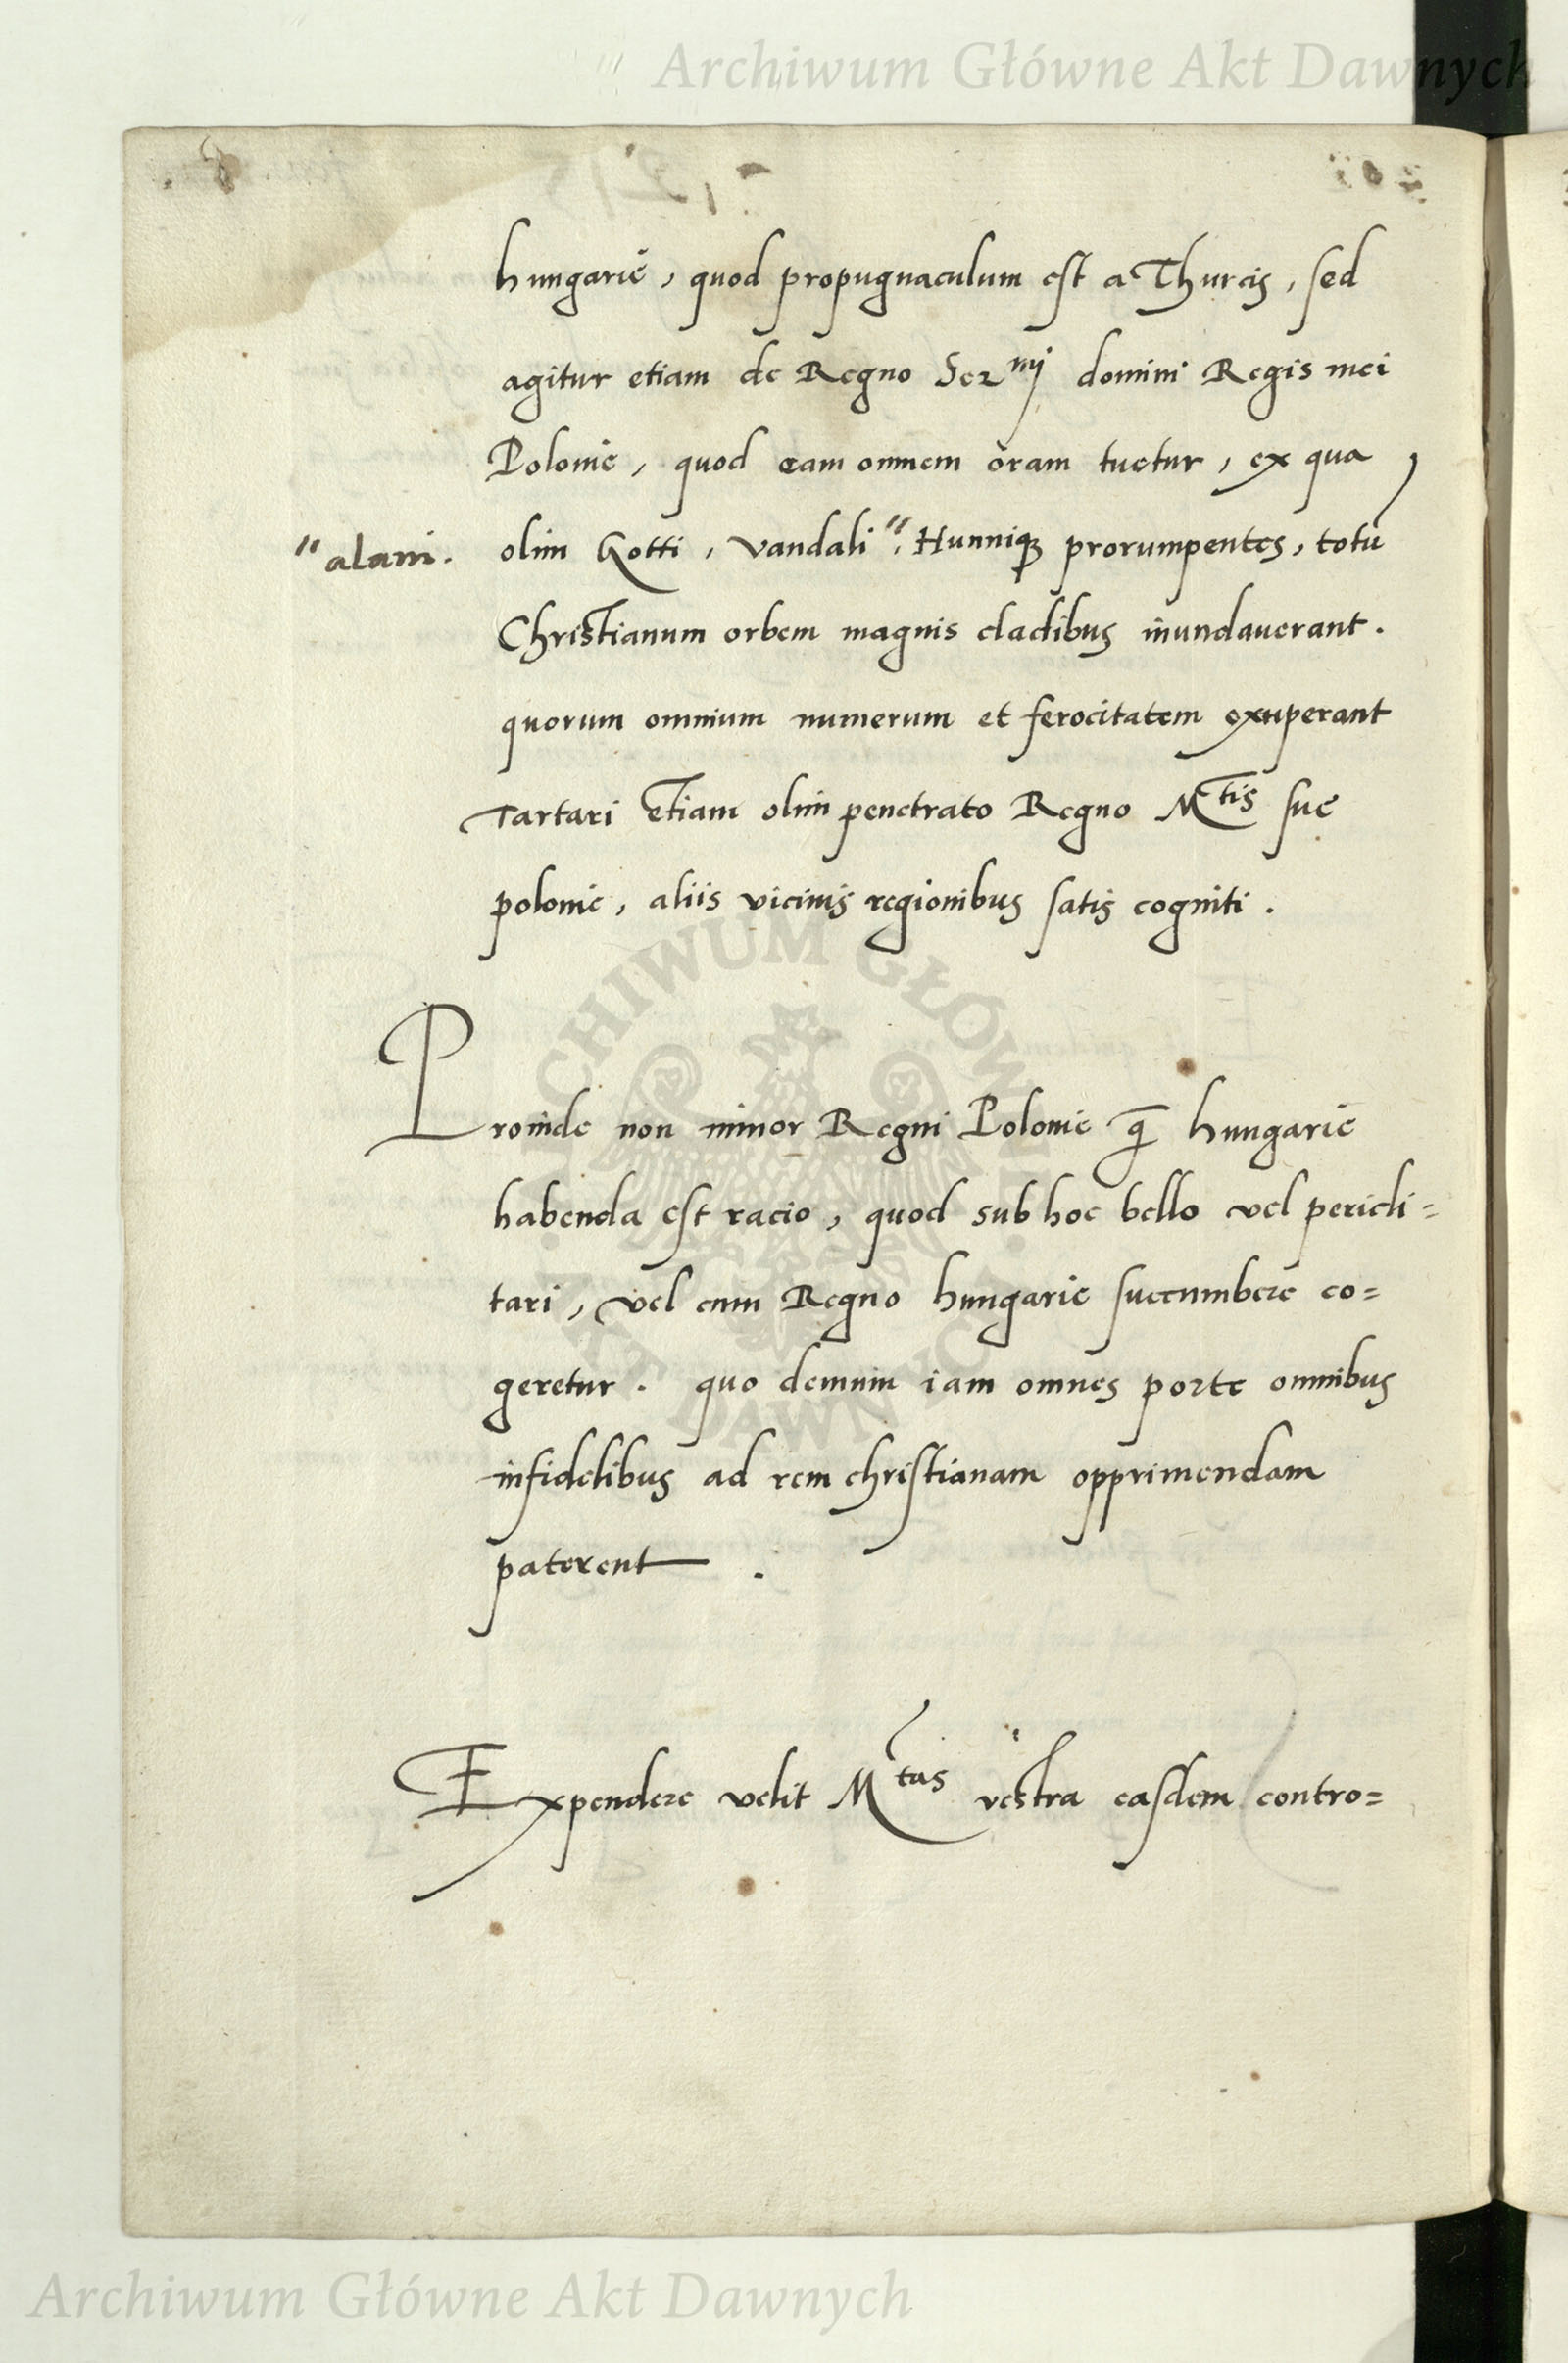 Archiwum Główne Akt Dawnych
hungarie, quod propugnaculum est a Thurcis, sed
agitur etiam de Regno Ser^mi domini Regis mei
Polonie, quod eam omnem oram tuetur, ex qua,
" alani. olim Gotti, vandali ", Hunniq₃ prorumpentes, totū
Christianum orbem magnis cladibus inundauerant.
quorum omnium numerum et ferocitatem exuperant
Tartari etiam olim penetrato Regno M^tis sue
polonie, aliis vicinis regionibus satis cogniti.
Proinde non minor Regni Polonie q̄ hungarie
habenda est racio, quod sub hoc bello vel pericli=
tari, vel cum Regno hungarie succumbere co=
geretur. quo demum iam omnes porte omnibus
infidelibus ad rem christianam opprimendam
paterent.
Expendere velit M^tas vestra easdem contro=
ARCHIWUM GŁÓWNE AKT DAWNYCH
Archiwum Główne Akt Dawnych